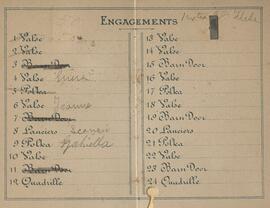 ENGAGEMENTS
1 Valse
2 Valse
3 Barn Door
4 Valse
5 Polka
6 Valse
7 Barn Door
8 Lanciers
9 Polka
10 Valse
11 Barn Door
12 Quadrille
13 Valse
14 Valse
15 Barn Door
16 Valse
17 Polka
18 Valse
19 Barn Door
20 Lanciers
21 Polka
22 Valse
23 Barn Door
24 Quadrille